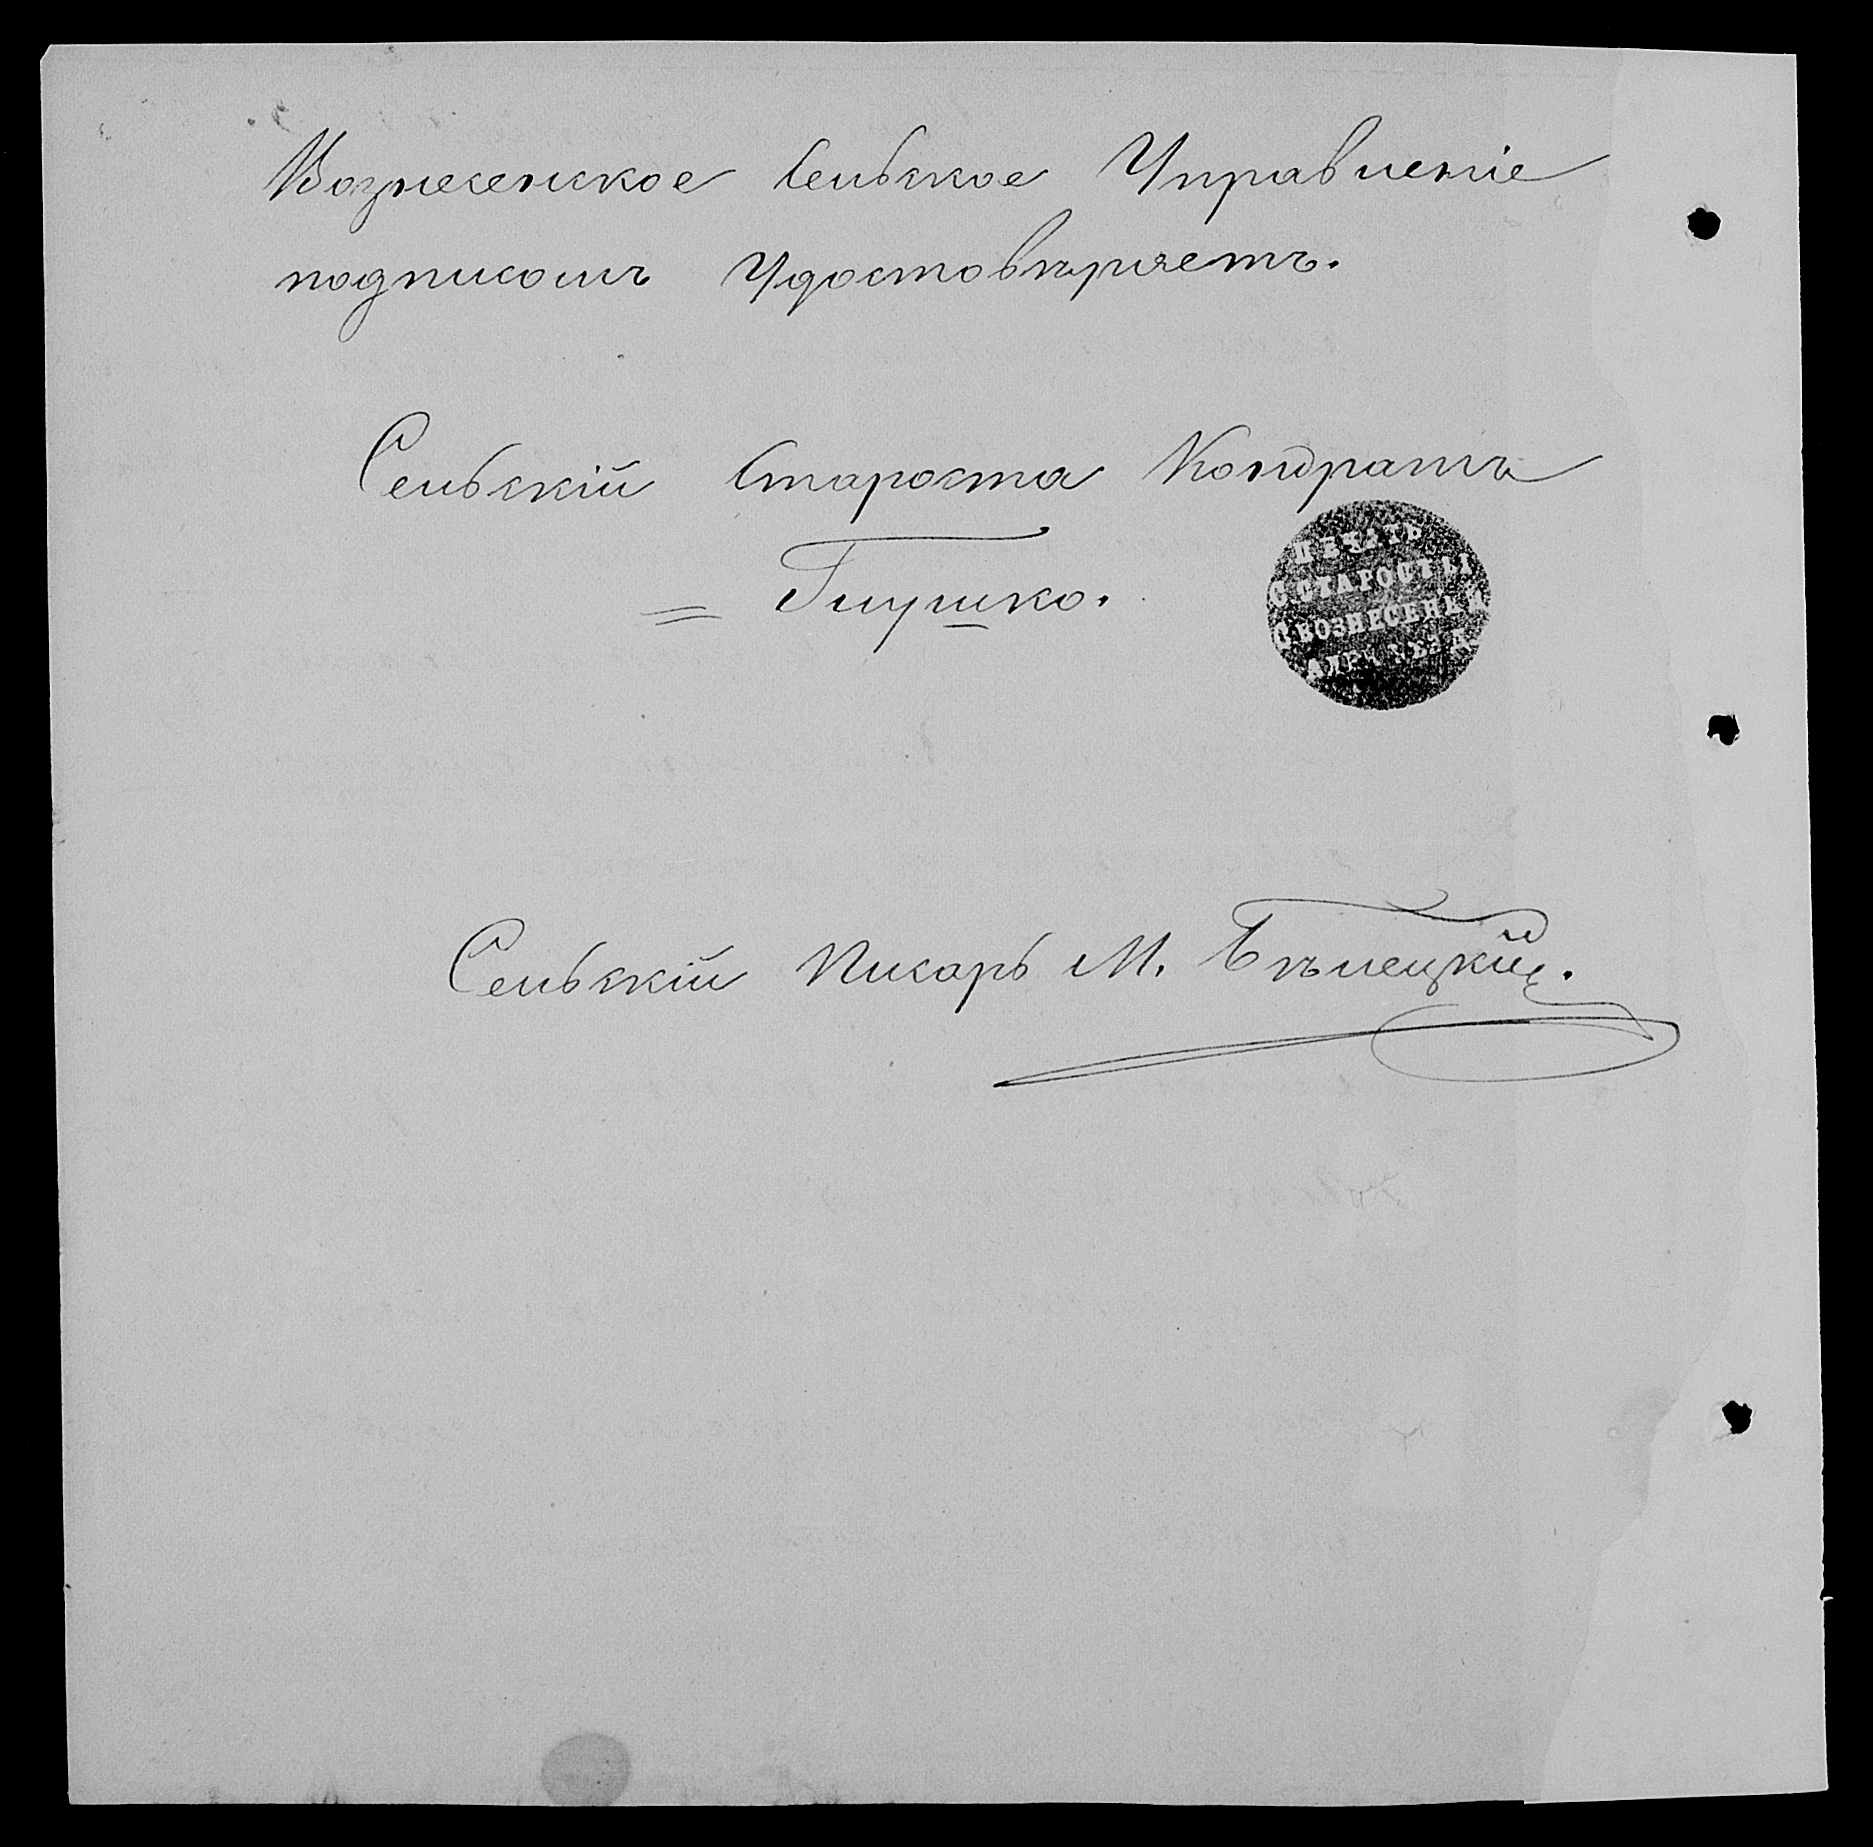 Вознесенское Сельское Управленіе
подписомъ Удостовѣряетъ.
Сельскій Староста Кондратъ
= Глушко.
ПЕЧАТЬ
С. СТАРОСТЫ
С. ВОЗНЕСЕНЬЯ
Сельскій Писарь М. Бѣлецкій.